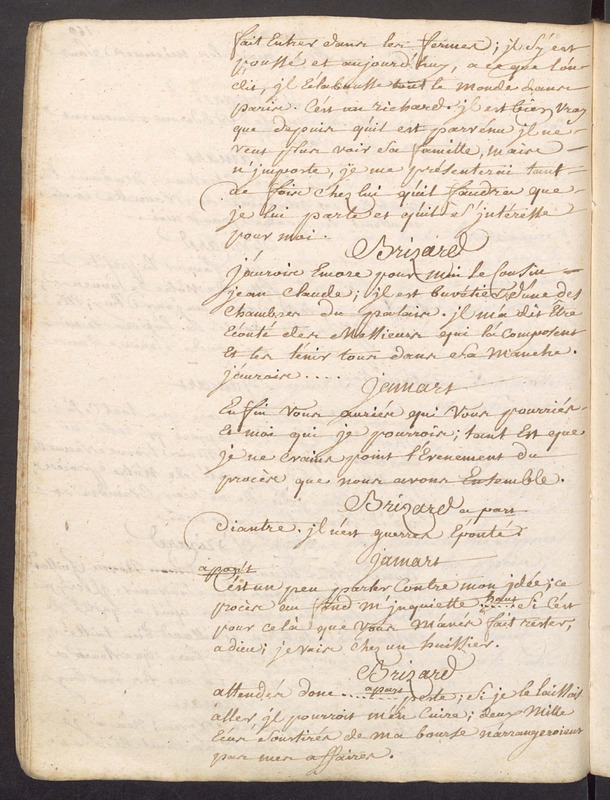 fait Entrer dans les fermes; jl s'y est
poussé et aujourd'huy, a ce que l'on
dit, jl Eclabousse tout le monde dans
paris. C'est un richard. jl est bien vray
que depuis qu'il est parvenu jl ne
veut plus voir sa famille, mais
n'jmporte, je me présenterai tant
de fois chez lui qu'il faudra que
je lui parle et qu'il s'intéresse
pour moi.
Brizard
j'aurois Encore pour moi le Cousin
jean Claude; jl est buvetier d'une des
Chambres du palais. jl m'a dit Etre
Ecouté des Messieurs qui la Composent
Et les tenir tous dans sa Manche.
j'aurais ....
jamart
Enfin Vous auriés qui Vous pourriés
Et moi qui je pourrois; tant Est que
je ne Crains point l'Evenement du
procès que nous avons Ensemble.
Brizard a part
Diantre. jl n'est guerres Eponté.
jamart
a part
C'est un peu parler Contre mon jdée; ce
procès au fond m'jnquiette .... haut Si C'est
pour celà que Vous m'avés fait rester,
adieu; je vais chez un huissier.
Brizard
attendés donc .... a part peste; Si je le laissois
aller jl pourroit m'en Cuire; deux Mille
Ecus soutirés de ma bourse n'arrangeroient
pas mes affaires.